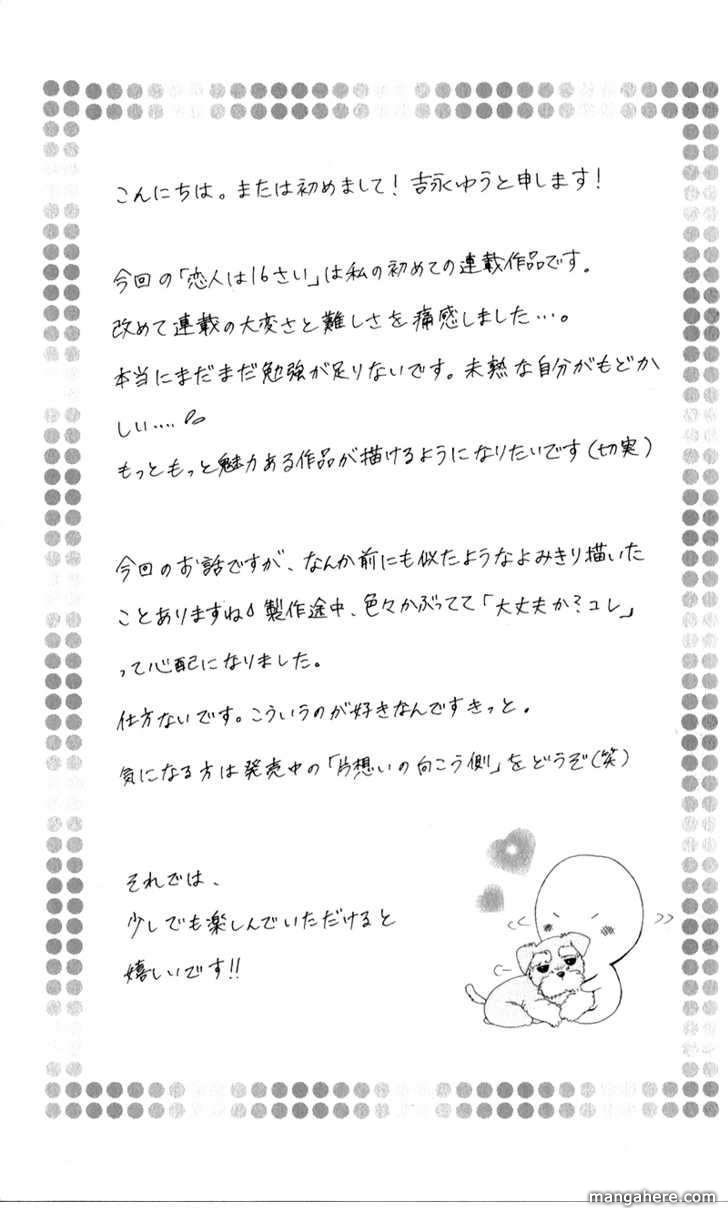 こんにちは。または初めまして！吉永ゆうと申します！
今回の「恋人は16さい」は私の初めての連載作品です。
改めて連載の大変さと難しさを痛感しました…。
本当にまだまだ勉強が足りないです。未熟な自分がもどか
しい‥‥
もっともっと魅力ある作品が描けるようになりたいです(切実)
今回のお話ですが、なんか前にも似たようなよみきり描いた
ことありますね 製作途中、色々かぶってて「大丈夫か？コレ」
って心配になりました。
仕方ないです。こういうのが好きなんですきっと。
気になる方は発売中の「片想いの向こう側」をどうぞ(笑)
それでは、
少しでも楽しんでいただけると
嬉しいです!!
mangahere.com